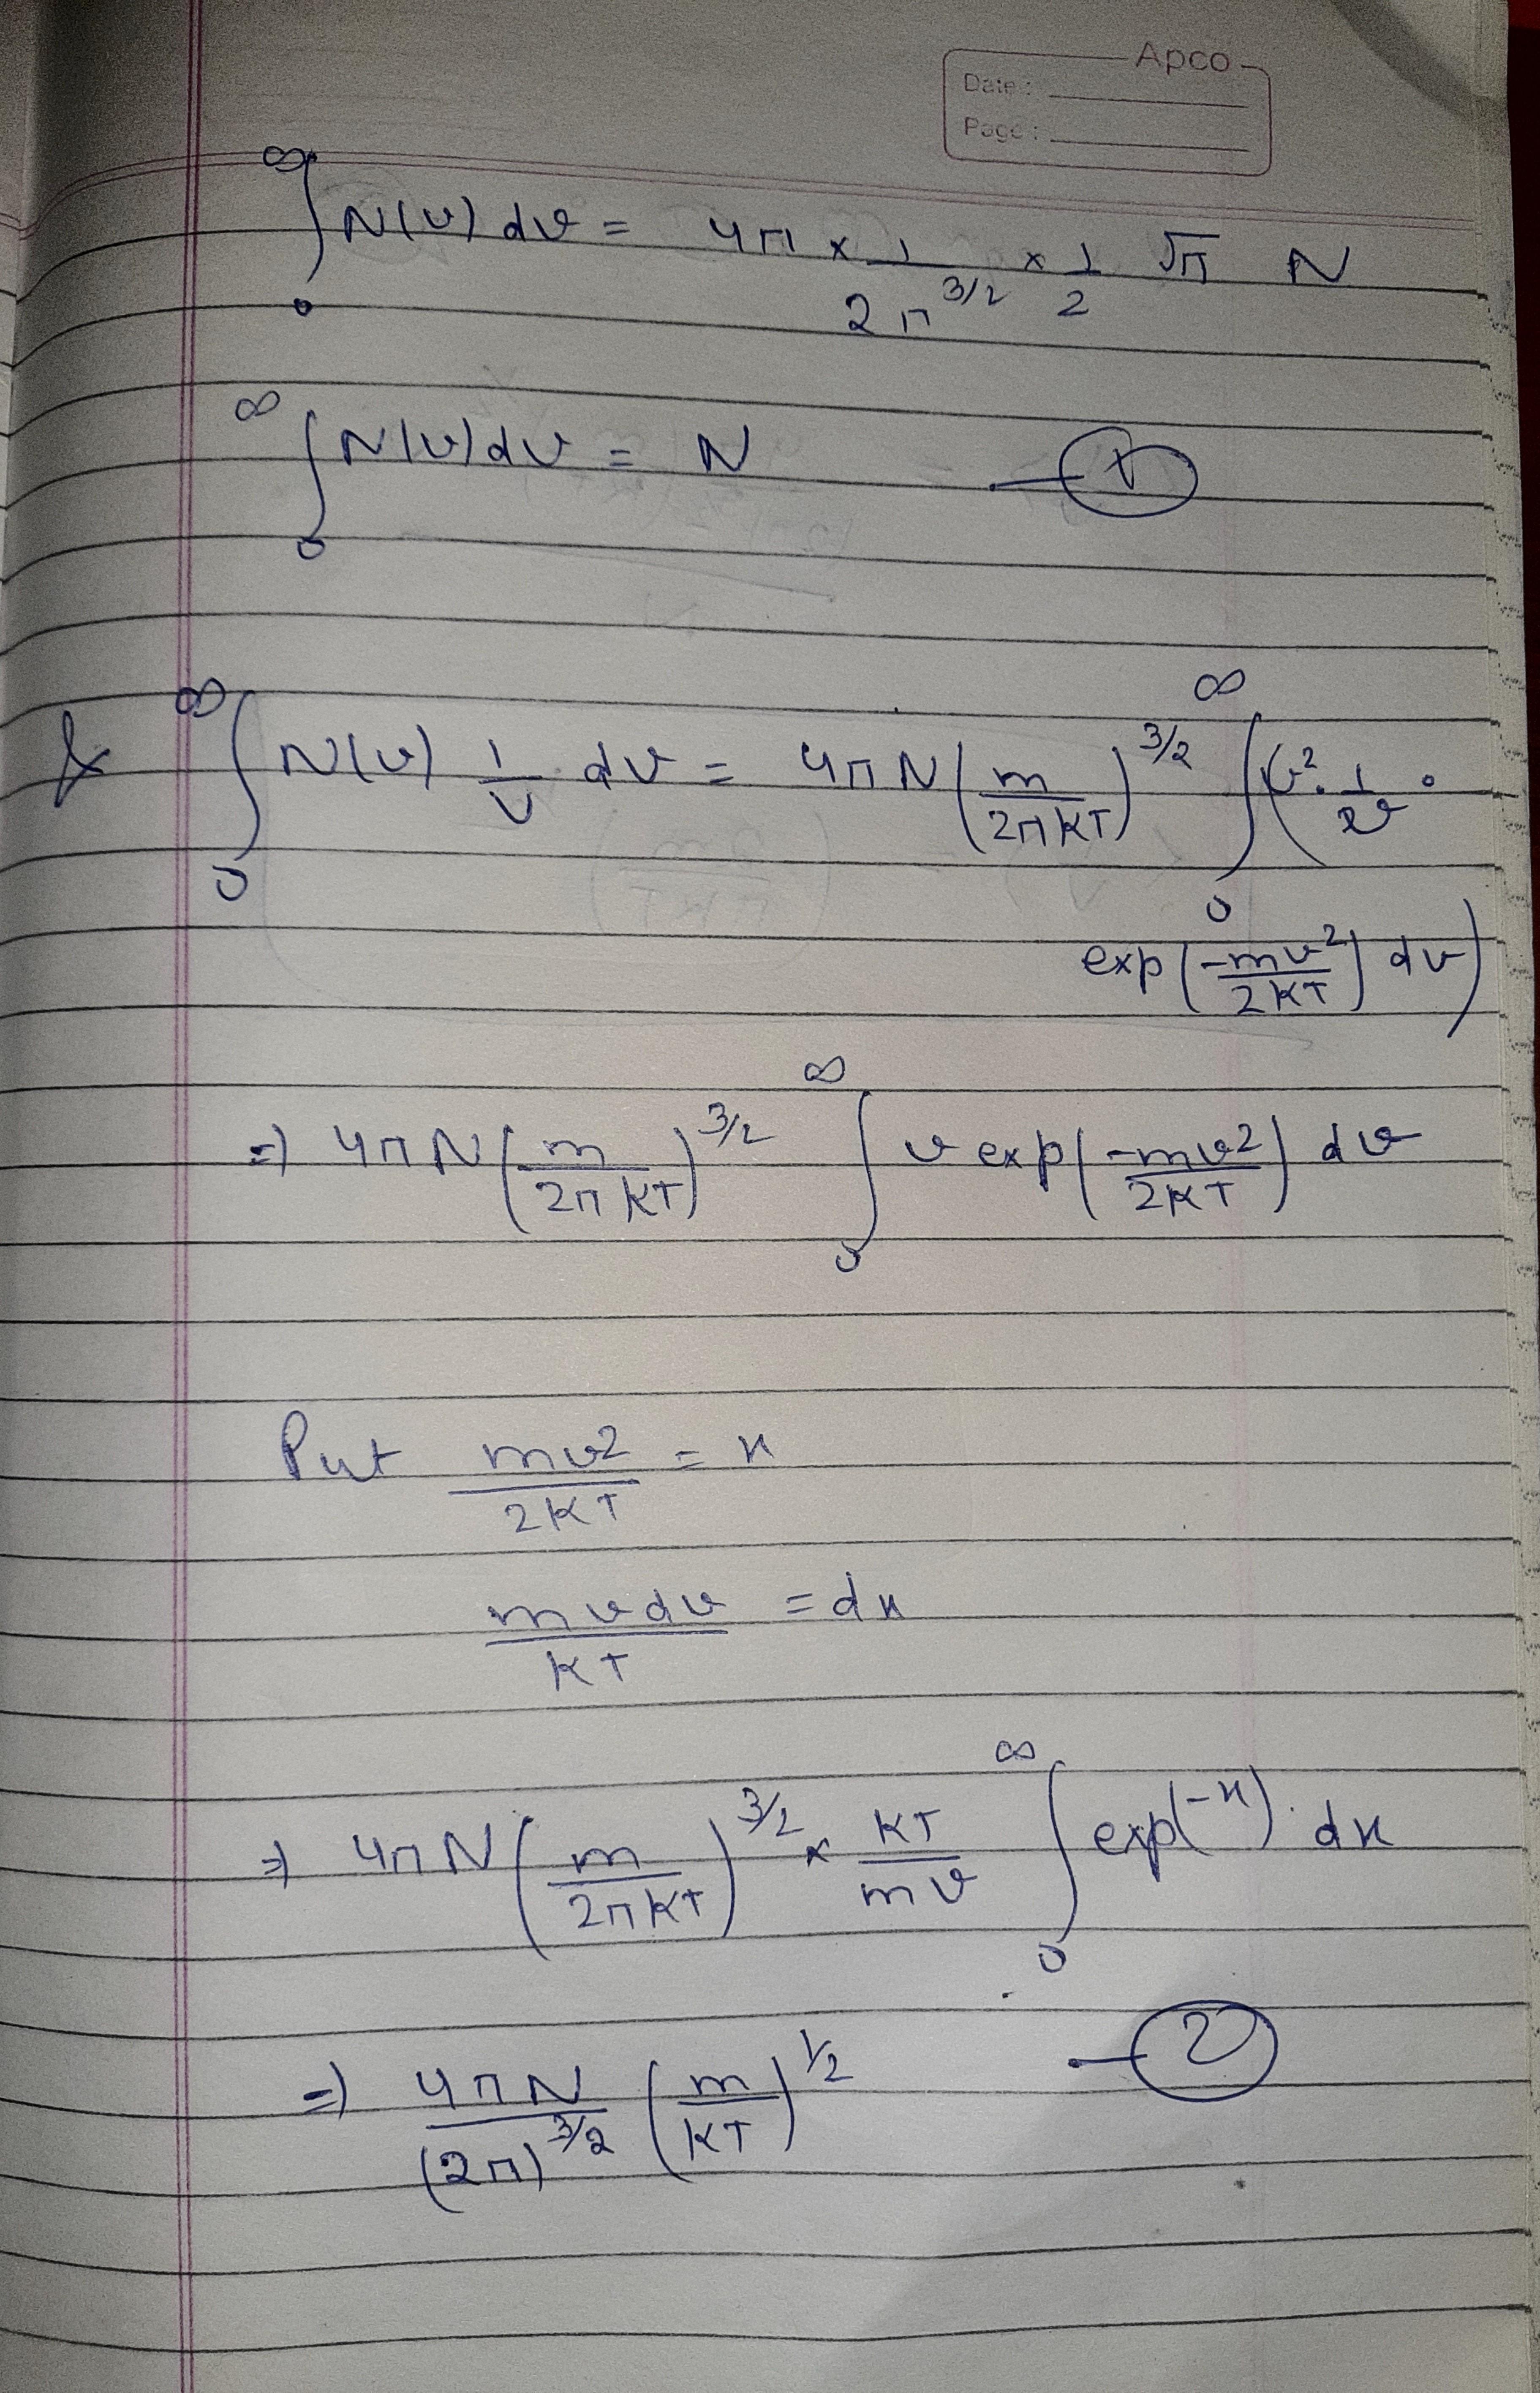 Apco
Date :
Page :
∫₀^∞ N(v) dv = 4π × 1/(2π^(3/2)) × 1/2 √π N
∫₀^∞ N(v) dv = N — ①
& ∫₀^∞ N(v) 1/v dv = 4πN (m/2πKT)^(3/2) ∫₀^∞ (v² · 1/v ·
exp(-mv²/2KT) dv)
⇒ 4πN (m/2πKT)^(3/2) ∫₀^∞ v exp(-mv²/2KT) dv
Put mv²/2KT = x
mvdv/KT = dx
⇒ 4πN (m/2πKT)^(3/2) × KT/mv ∫₀^∞ exp(-x) · dx
⇒ 4πN/(2π)^(3/2) (m/KT)^(1/2) — ②